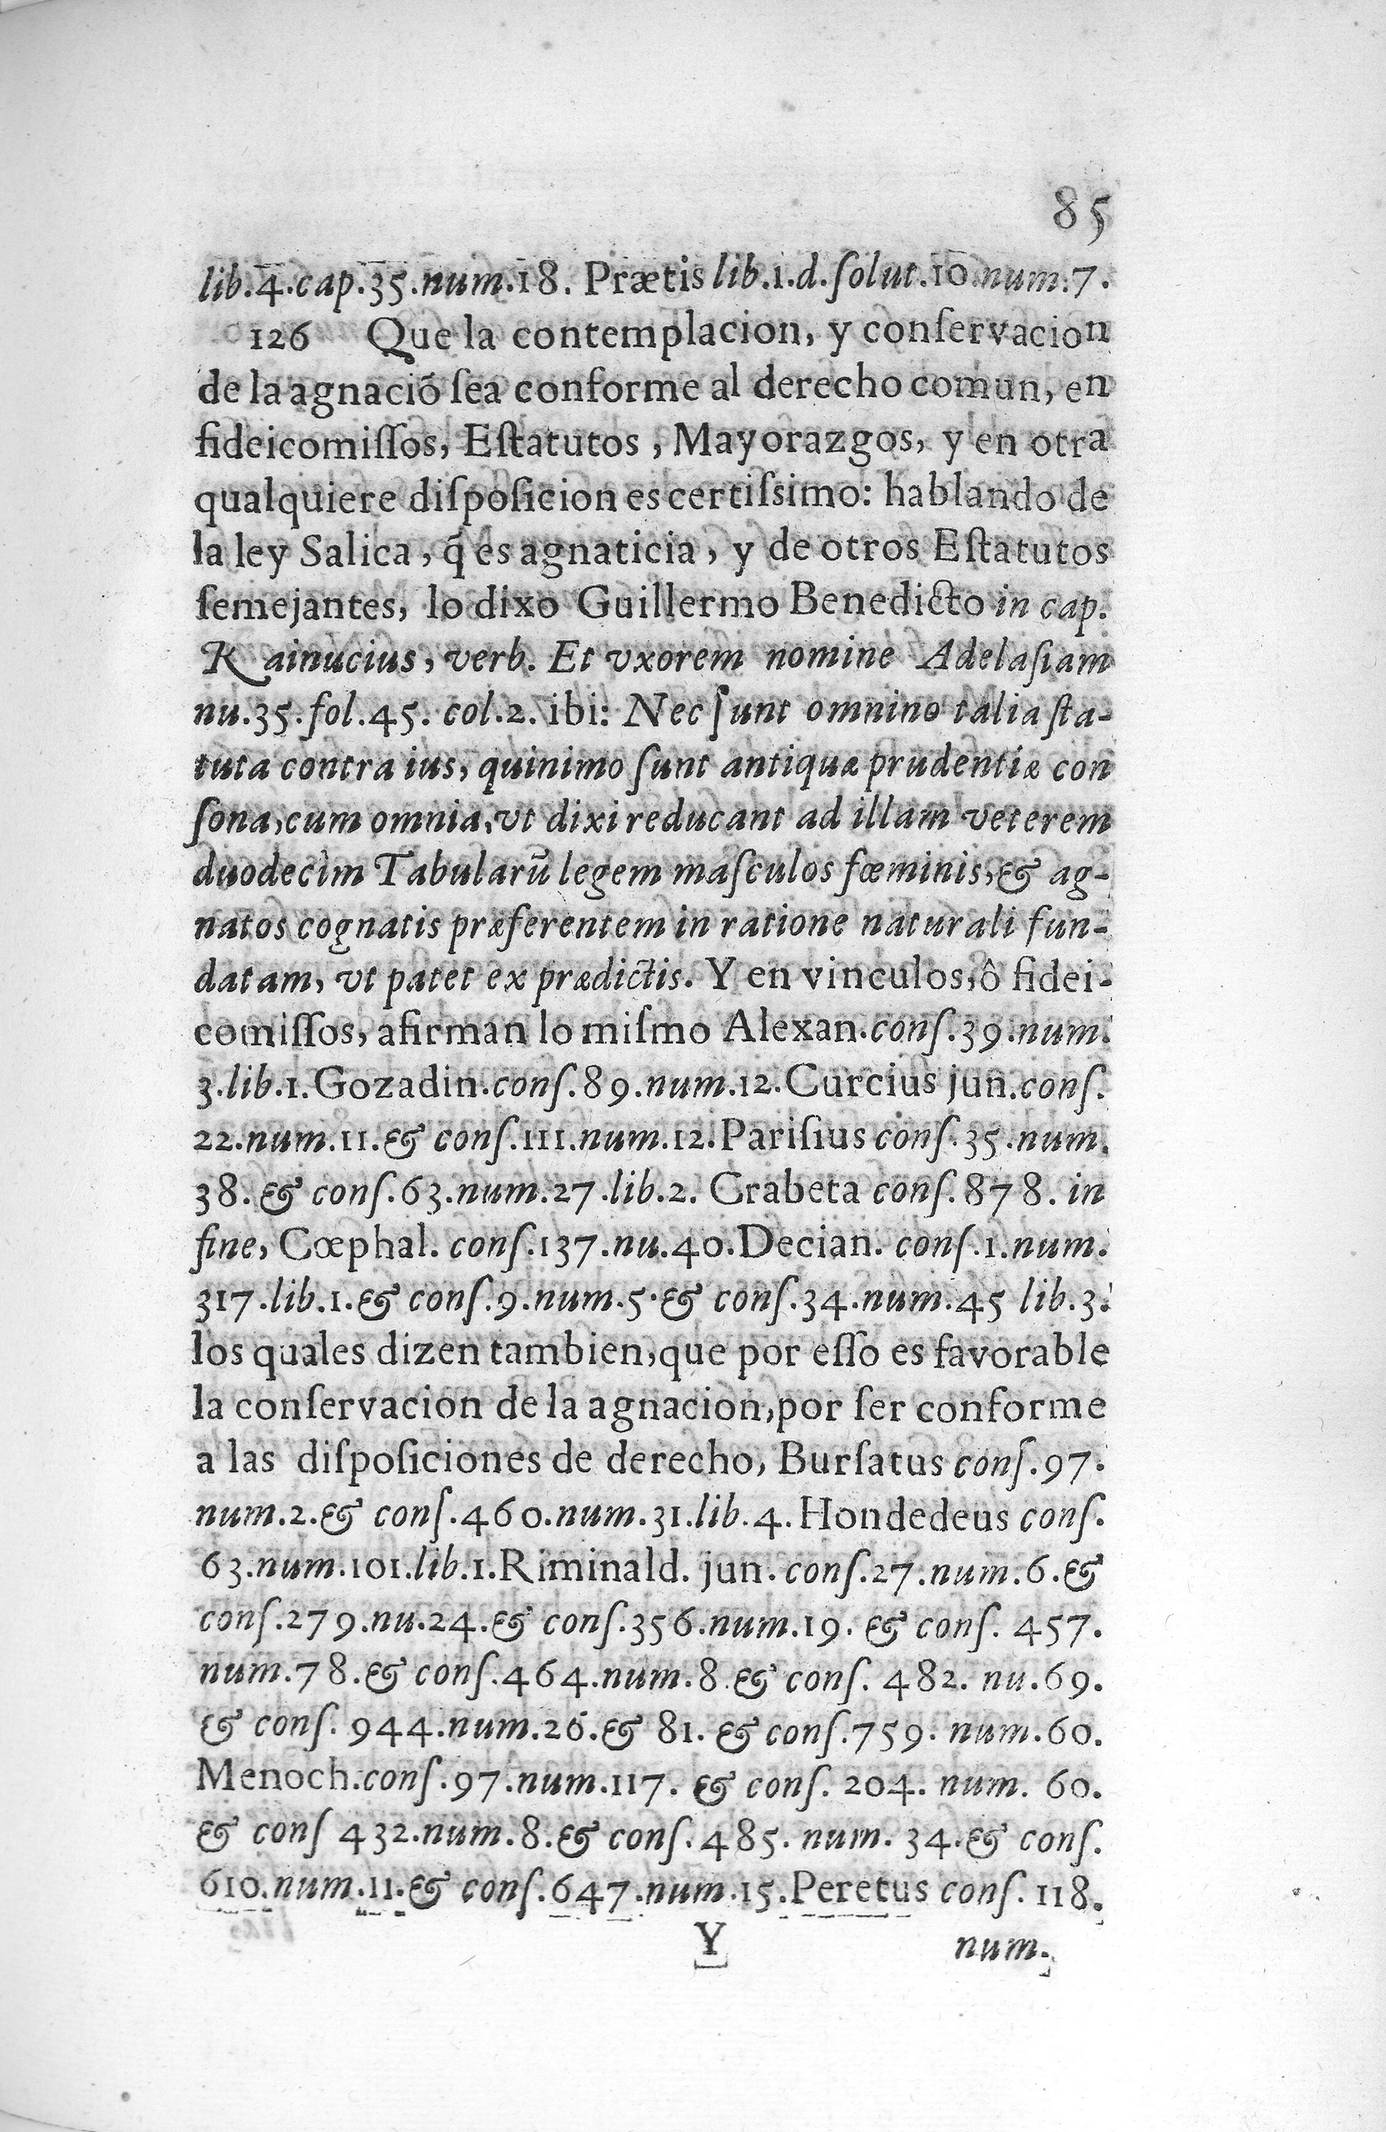 85
lib.4.cap.35.num.18. Prætis lib.1.d.ſolut.10.num.7.
126 Que la contemplacion, y conſervacion
de la agnaciõ ſea conforme al derecho comun, en
fideicomiſſos, Eſtatutos , Mayorazgos, y en otra
qualquiere diſpoſicion es certiſsimo: hablando de
la ley Salica , q̃ es agnaticia , y de otros Eſtatutos
ſemejantes, lo dixo Guillermo Benedicto in cap.
Rainucius, verb. Et vxorem nomine Adelaſiam
nu.35.fol.45. col.2. ibi: Nec ſunt omnino talia ſta-
tuta contra ius, quinimo ſunt antiquæ prudentiæ con
ſona,cum omnia,vt dixi reducant ad illam veterem
duodecim Tabularũ legem maſculos fœminis,& ag-
natos cognatis præferentem in ratione naturali fun-
datam, vt patet ex prædictis. Y en vinculos,ô fidei-
comiſſos, afirman lo miſmo Alexan.conſ.39.num.
3.lib.1.Gozadin.conſ.89.num.12.Curcius jun.conſ.
22.num.11.& conſ.111.num.12.Pariſius conſ.35.num.
38.& conſ.63.num.27.lib.2. Grabeta conſ.878. in
fine, Cœphal. conſ.137.nu.40.Decian. conſ.1.num.
317.lib.1.& conſ.9.num.5.& conſ.34.num.45 lib.3.
los quales dizen tambien,que por eſſo es favorable
la conſervacion de la agnacion,por ſer conforme
a las diſpoſiciones de derecho, Burſatus conſ.97.
num.2.& conſ.460.num.31.lib.4.Hondedeus conſ.
63.num.101.lib.1.Riminald. jun. conſ.27.num.6.&
conſ.279.nu.24.& conſ.356.num.19. & conſ. 457.
num.78.& conſ.464.num.8.& conſ. 482. nu.69.
& conſ. 944.num.26.& 81. & conſ.759. num.60.
Menoch.conſ.97.num.117. & conſ. 204. num. 60.
& conſ 432.num.8.& conſ.485. num. 34.& conſ.
610.num.11.& conſ.647.num.15.Peretus conſ. 118.
Y num.